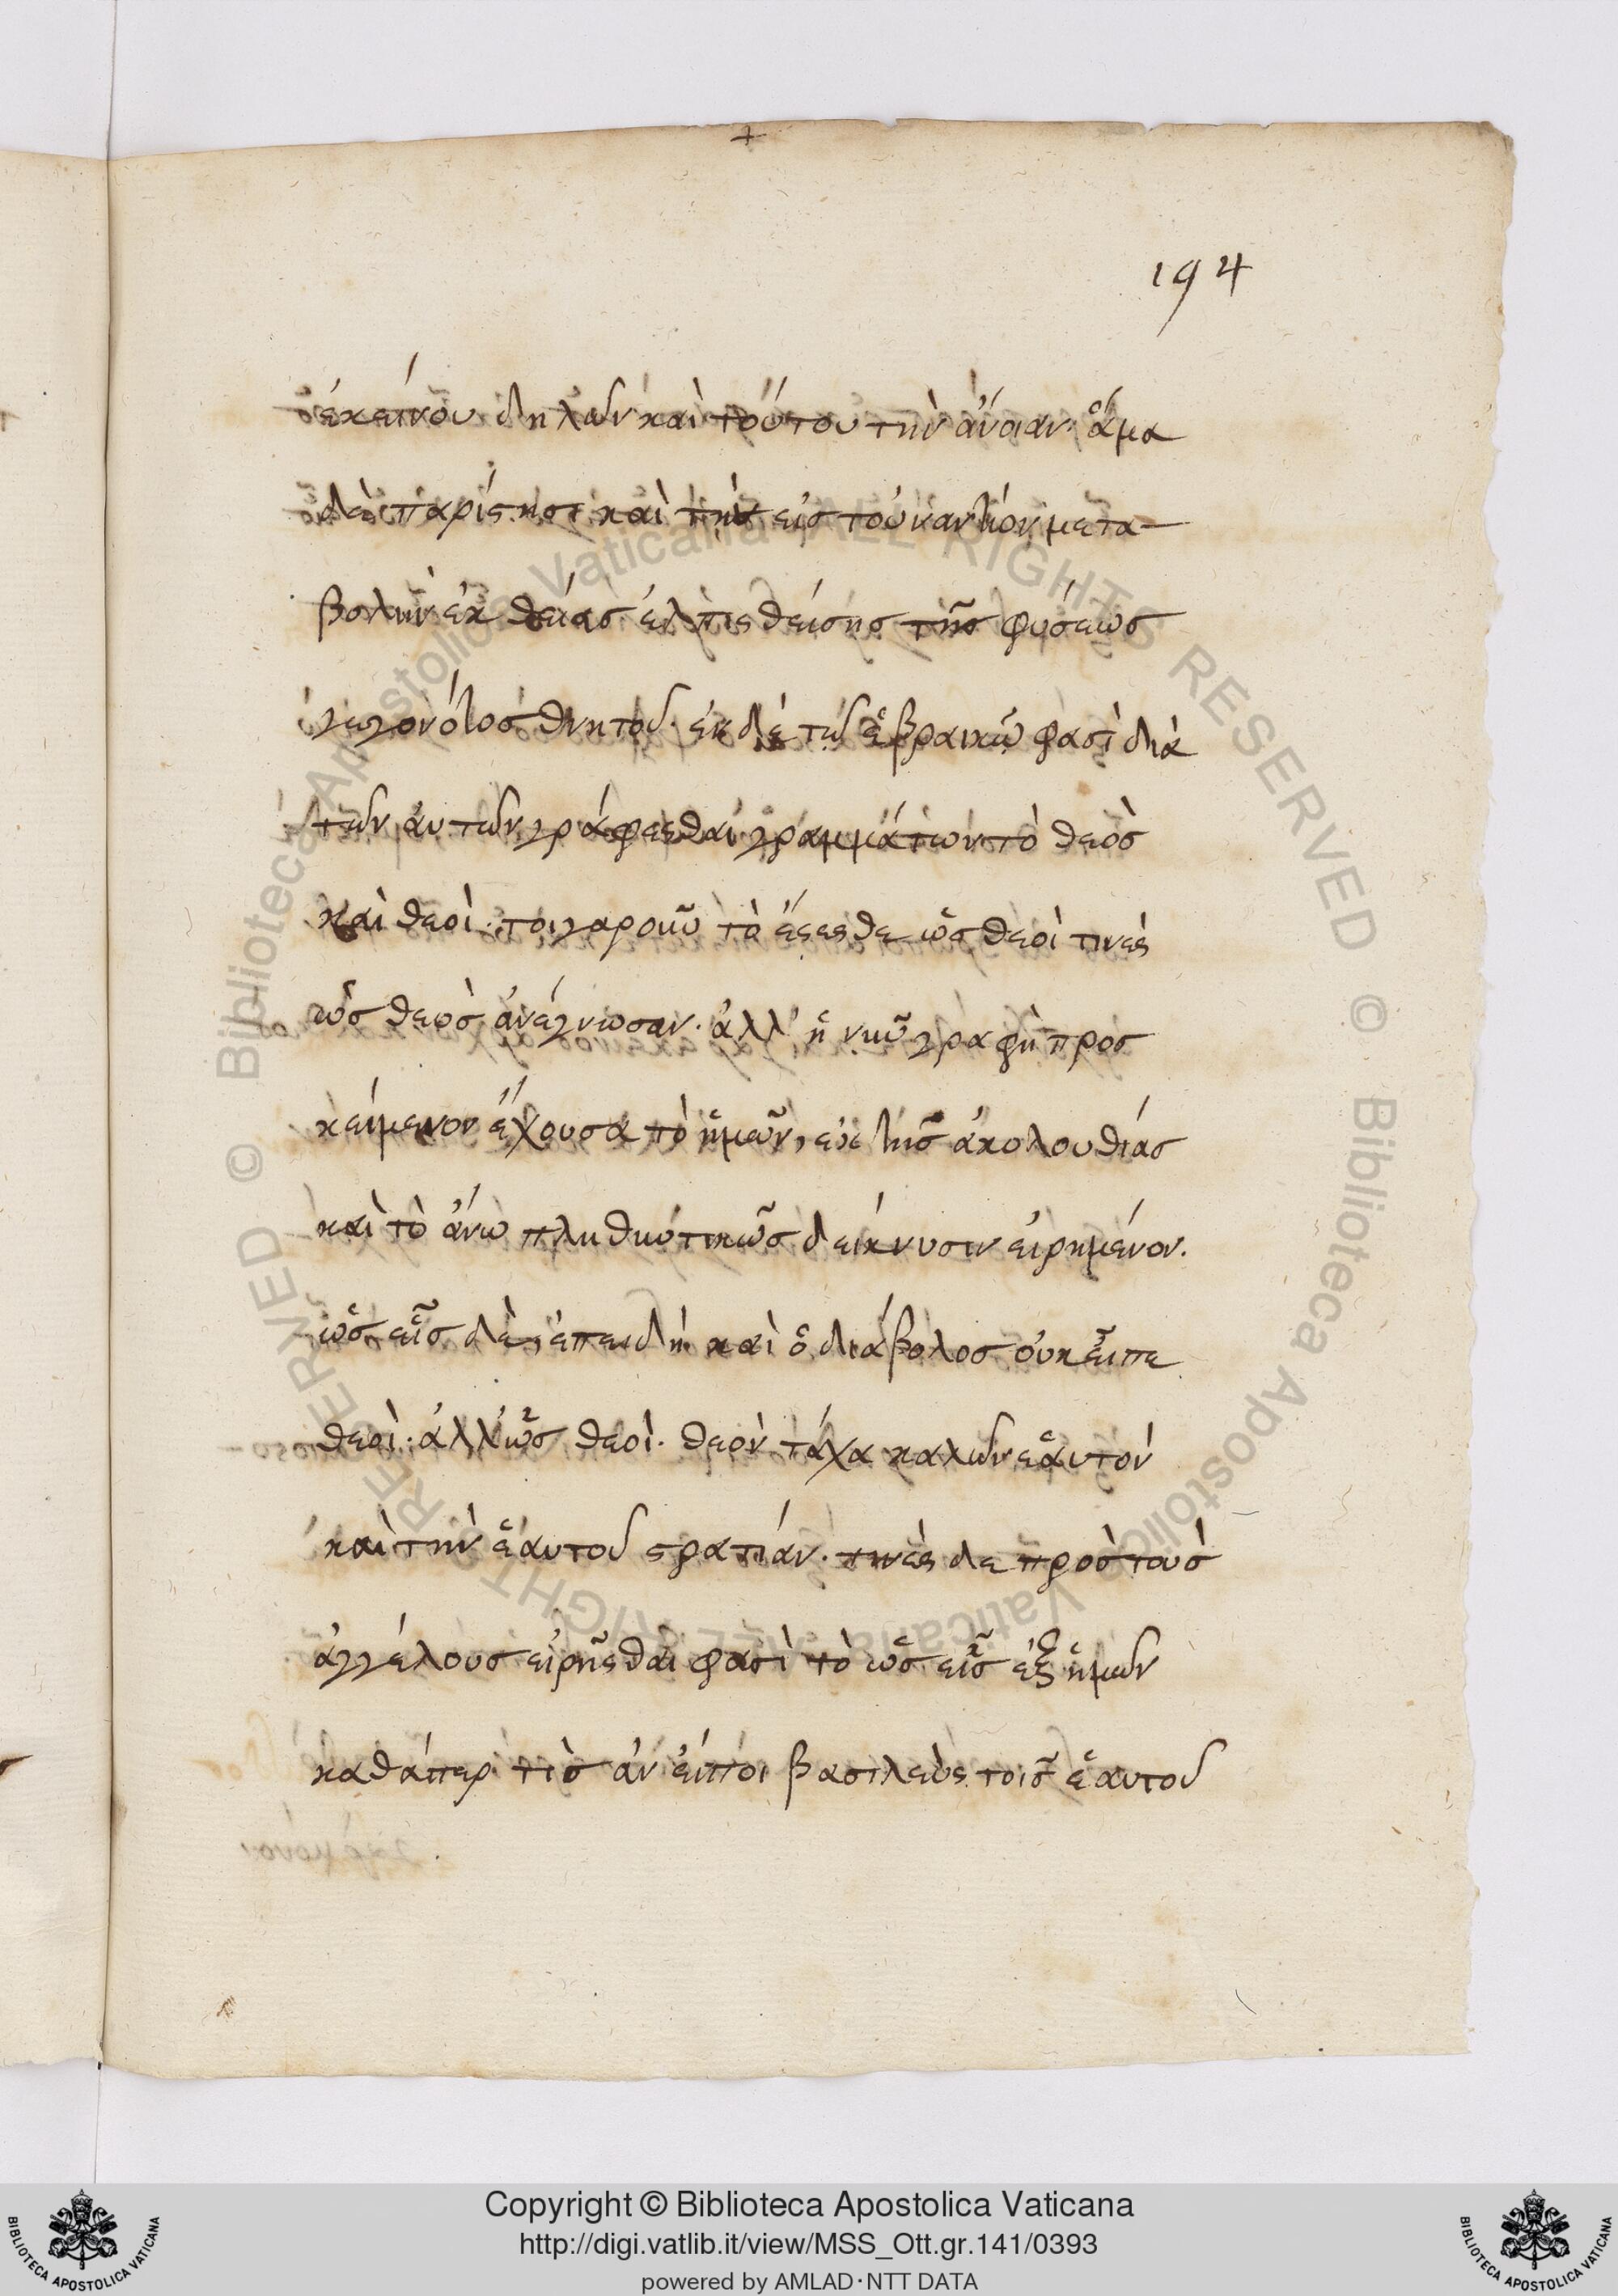 194
ἐκείνου δηλῶν καὶ τούτου τὴν ἄνοιαν. ἅμα
δὲ παρίστησι καὶ τὴν εἰς τοὐναντίον μετα-
βολὴν ἐκ θείας ἐλπισθείσης τῆς φύσεως
γεγονότος θνητοῦ. ἐκ δὲ τῶν ἑβραικῶν φασὶ διὰ
τῶν αὐτῶν γράφεσθαι γραμμάτων τὸ θεὸς
καὶ θεοὶ. τοιγαροῦν τὸ ἔσεσθε ὡς θεοὶ τινὲς
ὡς θεὸς ἀνέγνωσαν. ἀλλ' ἡ νῦν γραφὴ προσ
κείμενον ἔχουσα τὸ ἡμῶν, ἐκ τῆς ἀκολουθίας
καὶ τὸ ἄνω πληθυντικῶς δείκνυσιν εἰρημένον.
ὡς εἷς δὲ, ἐπειδὴ καὶ ὁ διάβολος οὐκ εἶπε
θεοὶ. ἀλλ' ὡς θεοὶ. θεὸν τάχα καλῶν ἑαυτὸν
καὶ τὴν ἑαυτοῦ στρατιάν. τινὲς δε πρὸς τοὺς
ἀγγέλους εἰρῆσθαι φασὶ τὸ ὡς εἷς ἐξ ἡμῶν
καθάπερ τὶς ἂν εἴποι βασιλεὺς τοῖς ἑαυτοῦ
Copyright © Biblioteca Apostolica Vaticana
http://digi.vatlib.it/view/MSS_Ott.gr.141/0393
powered by AMLAD·NTT DATA